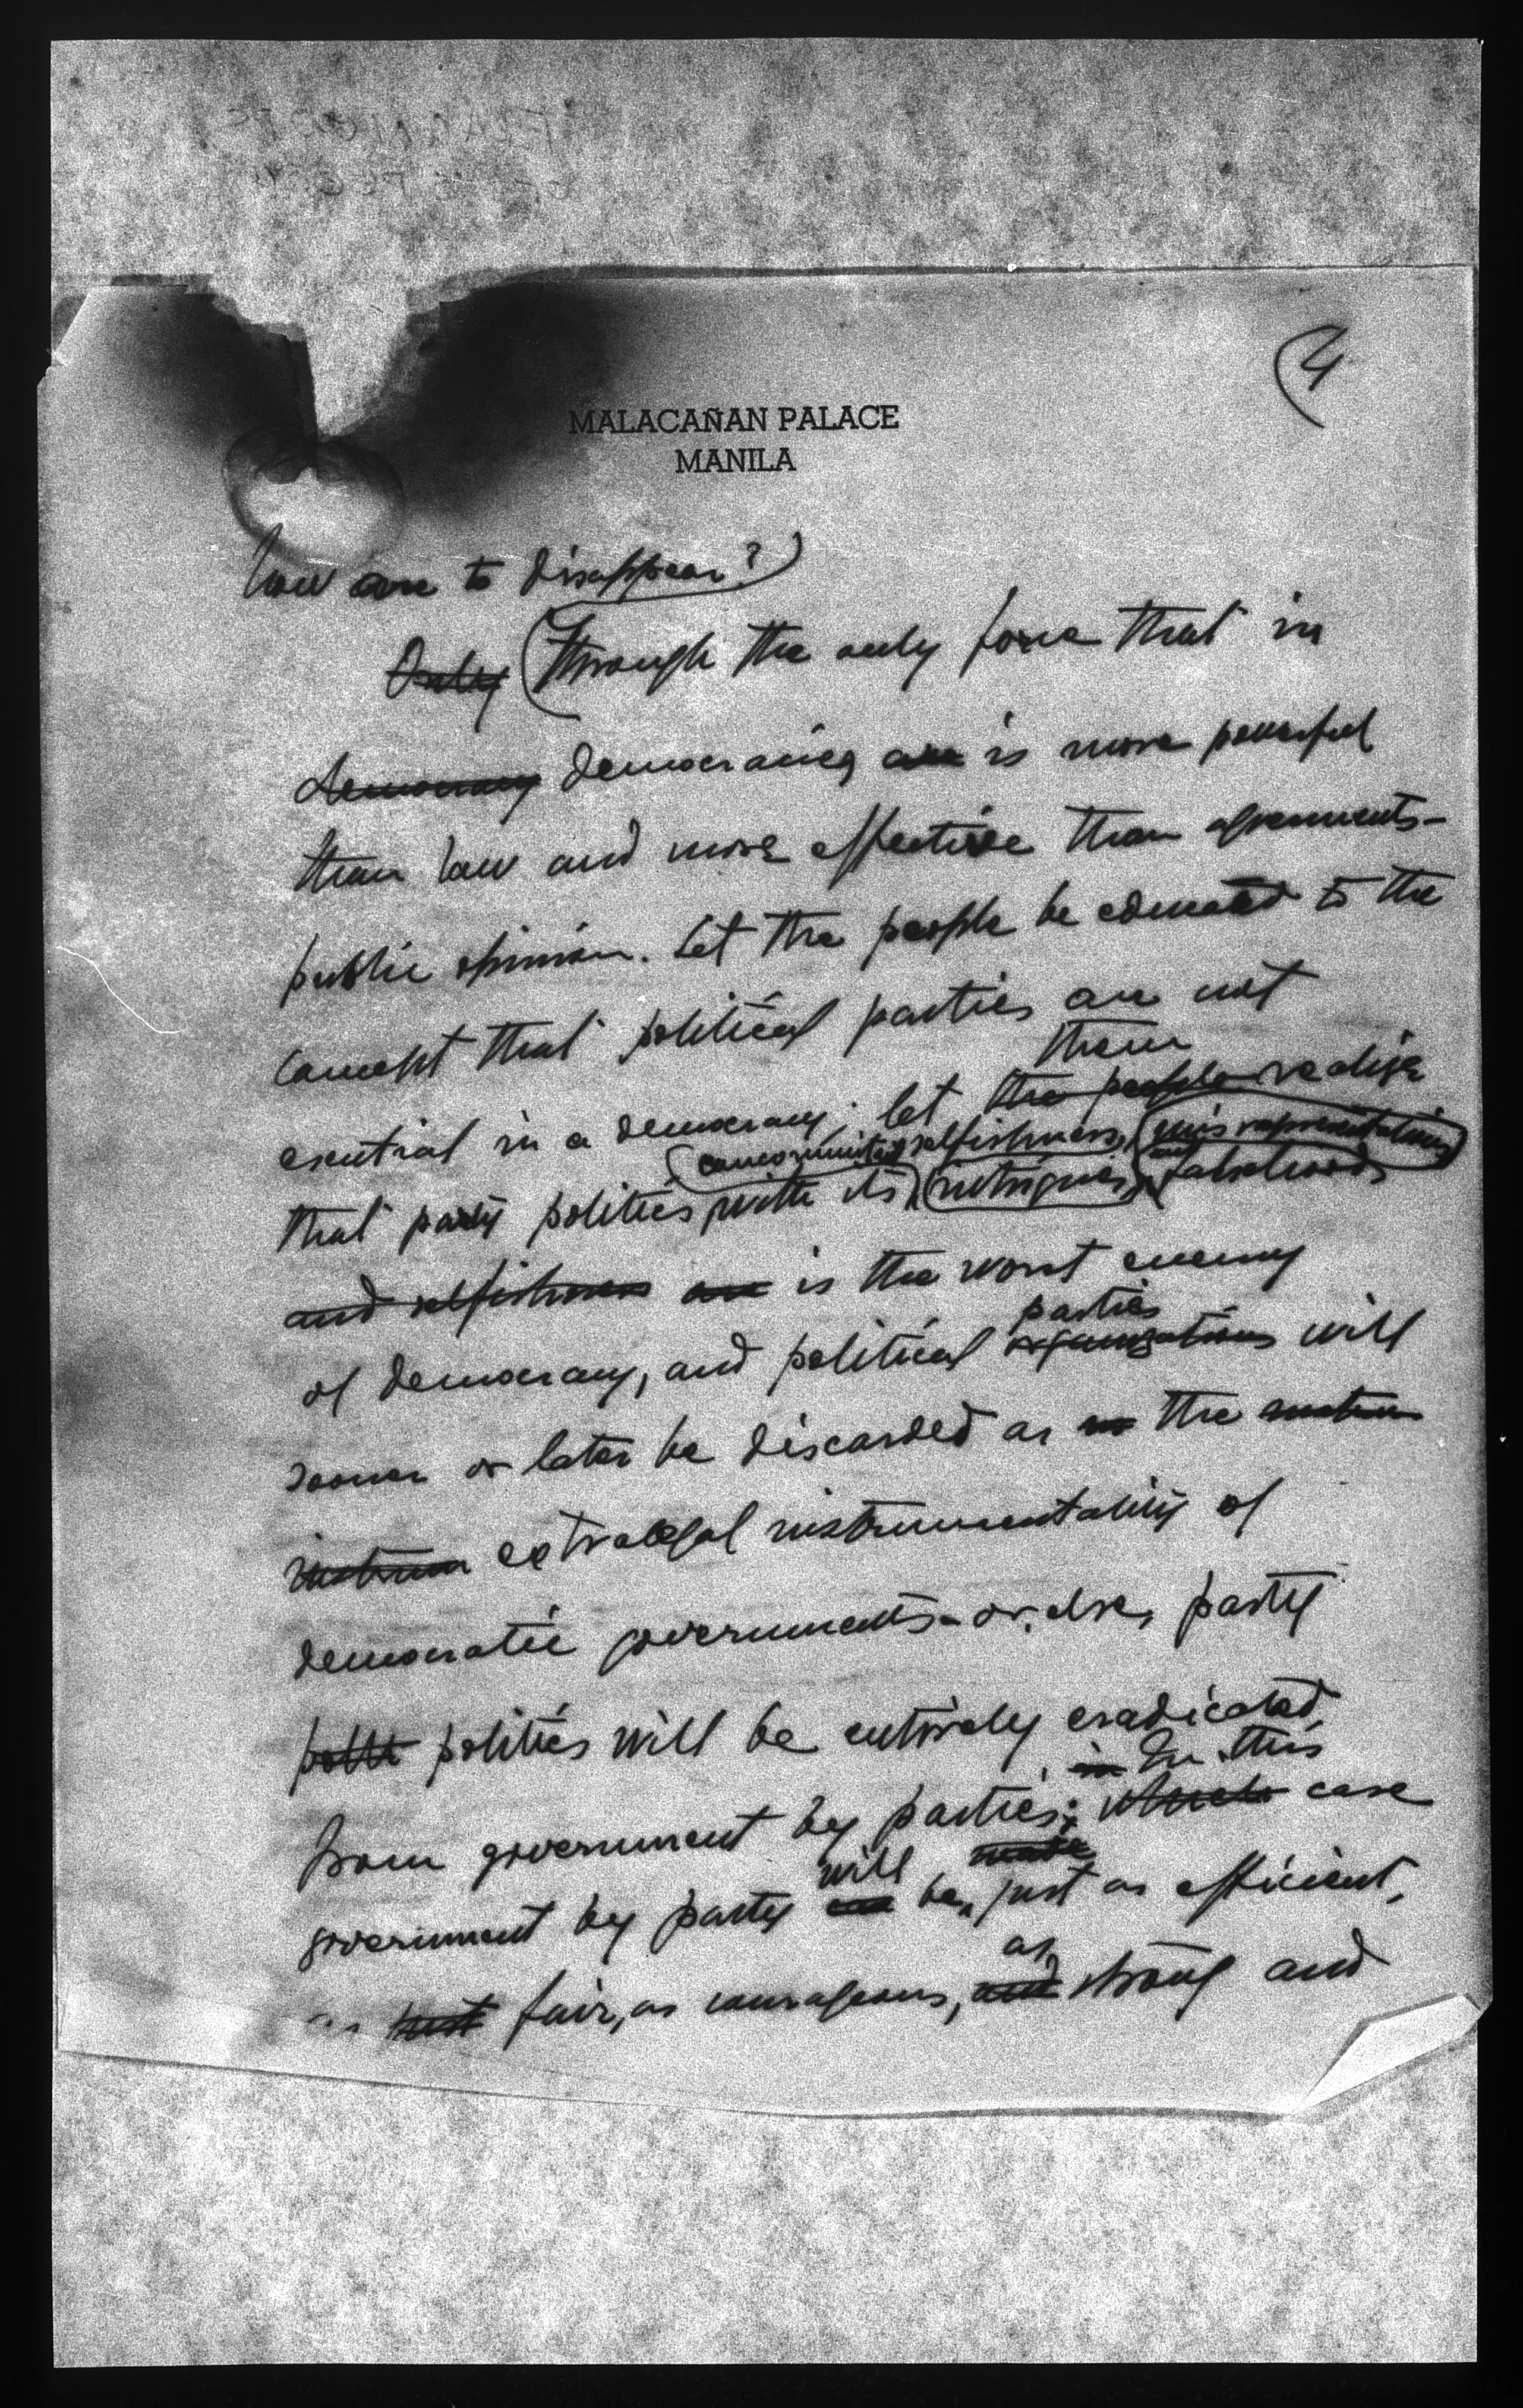 (4
MALACAÑAN PALACE
MANILA
how are to disappear?)
Only (Through the only force that in
democracy democracies are is more powerful
than law and more effective than agreements—
public opinion. Let the people be educated to the
concept that political parties are not
them
esential in a democracy; let the people realize
concomitant selfishness, misrepresentations
that party politics with its intrigues, and falsehoods
and selfishness are is the worst enemy
parties
of democracy, and political organizations will
sooner or later be discarded as the
extralegal instrumentality of
democratic governments - or else, party
politics will be entirely eradicated
in In this
from government by parties; which case
will made
government by party can be just as efficient,
as
as just fair, as courageous, and strong and